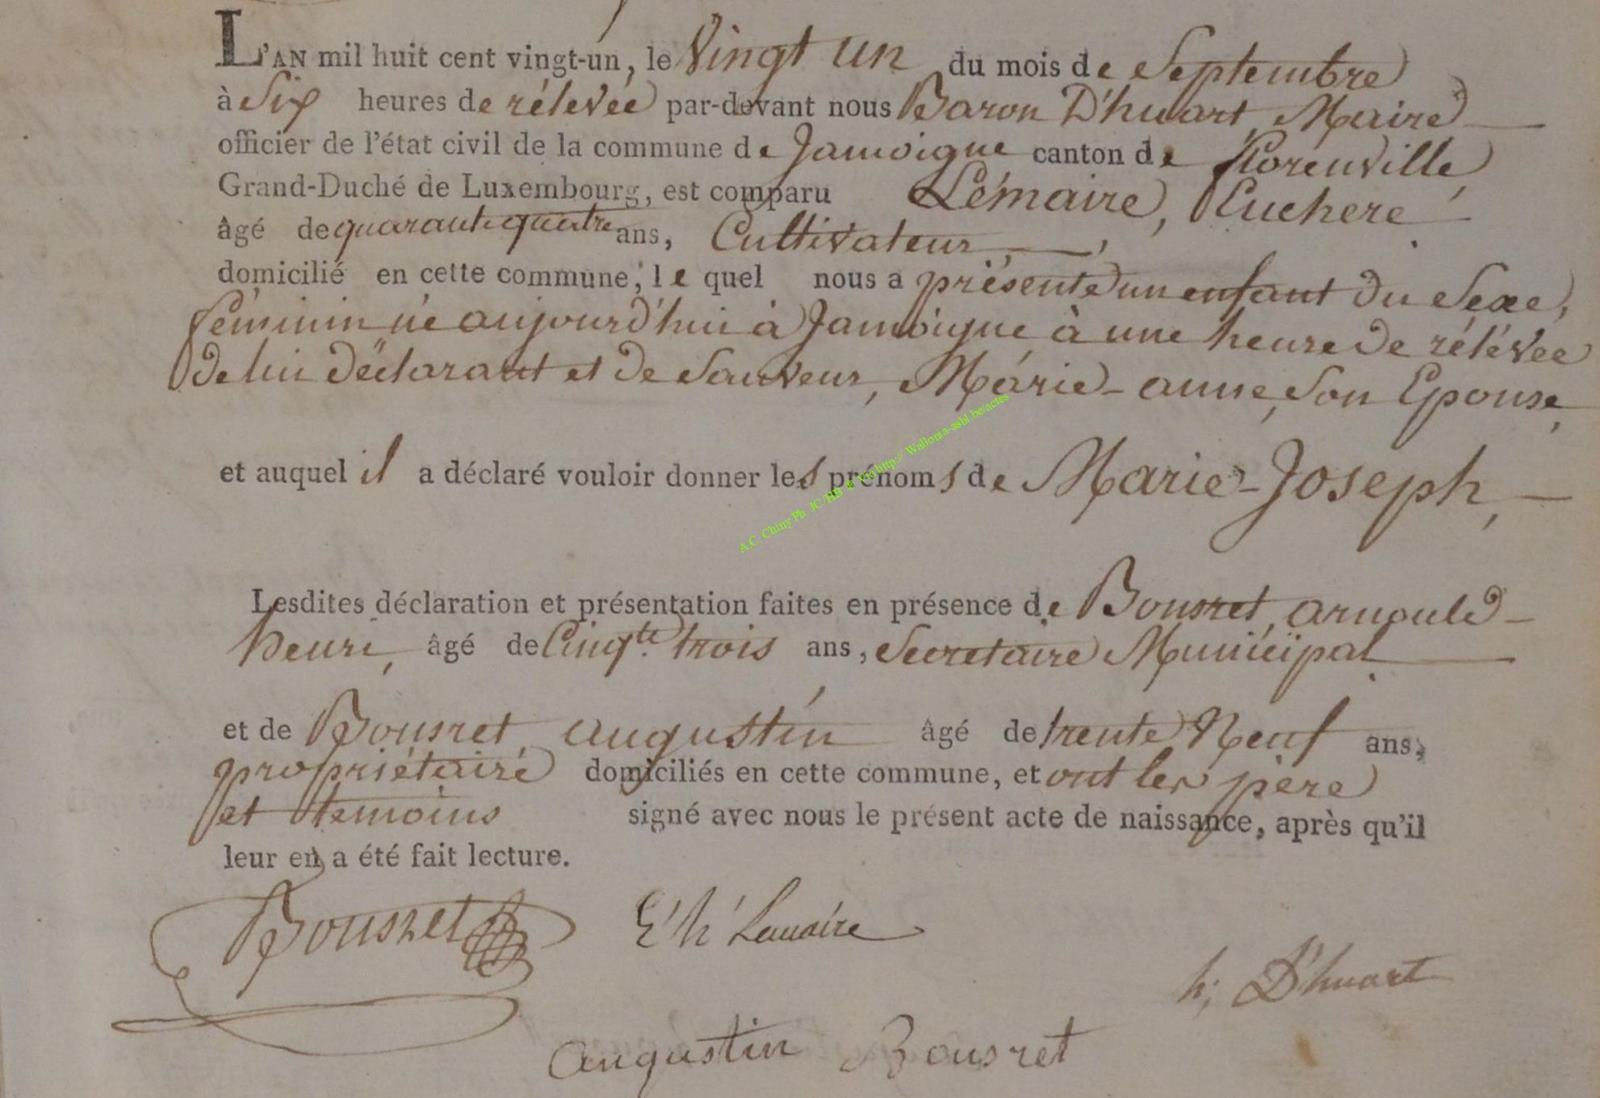 L'AN mil huit cent vingt-un, le Vingt un du mois de Septembre
à Six heures de rélevée par-devant nous Baron D'huart, Maire
officier de l'état civil de la commune de Jamoigne canton de florenville,
Grand-Duché de Luxembourg, est comparu Lémaire, Euchere
âgé de quarante quatre ans, Cultivateur,
domicilié en cette commune, le quel nous a présenté un enfant du Sexe,
féminin né aujourd'hui à Jamoigne à une heure de rélévée
de lui déclarant et de Sauveur, Marie-anne, Son Epouse,
et auquel il a déclaré vouloir donner les prénoms de Marie-Joseph,
A.C. Chiny Ph. JC/HB http:// Wallonia-asbl.be/actes
Lesdites déclaration et présentation faites en présence de Bousret, arnould
henri, âgé de Cinqte. trois ans, Secretaire Municipal
et de Bousret, augustin âgé de trente Neuf ans,
propriétaire domiciliés en cette commune, et ont les père
et temoins signé avec nous le présent acte de naissance, après qu'il
leur en a été fait lecture.
Bousret E'h' Lemaire
h; D'huart
augustin Bousret